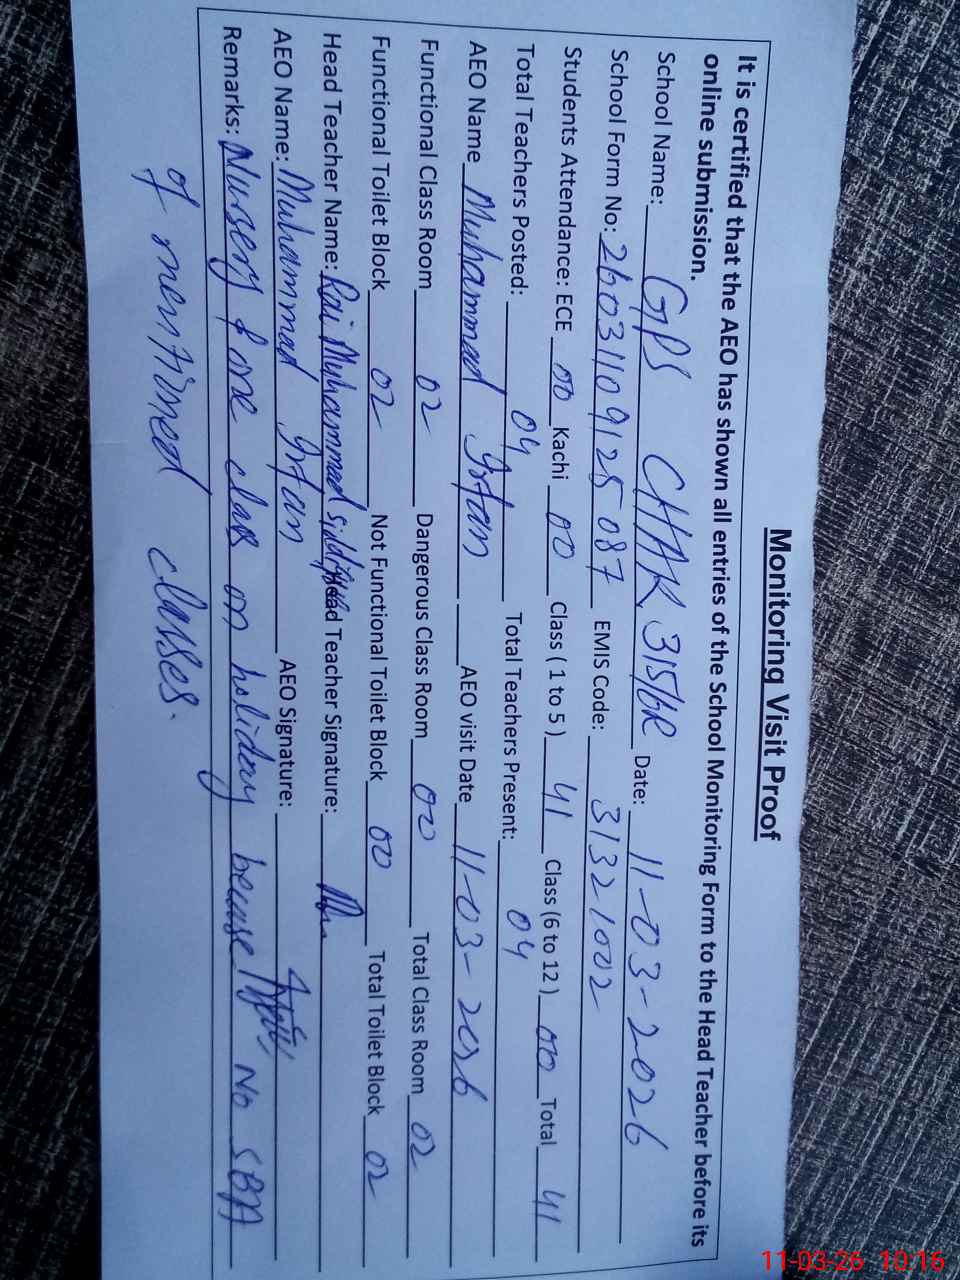 Monitoring Visit Proof
It is certified that the AEO has shown all entries of the School Monitoring Form to the Head Teacher before its
online submission.
School Name: GPS CHAK 315/GR Date: 11-03-2026
School Form No: 260311091255087 EMIS Code: 31321002
Students Attendance: ECE 00 Kachi 00 Class ( 1 to 5 ) 41 Class (6 to 12 ) 00 Total 41
Total Teachers Posted: 04 Total Teachers Present: 04
AEO Name Muhammad AEO visit Date 11-03-2026
Functional Class Room 02 Dangerous Class Room 00 Total Class Room 02
Functional Toilet Block 02 Not Functional Toilet Block 00 Total Toilet Block 02
Head Teacher Name: Rai Muhammad Head Teacher Signature:
AEO Name: Muhammad AEO Signature:
Remarks: Nursery & one class on holiday because No SBA
of mentioned classes.
11-03-26 10:16